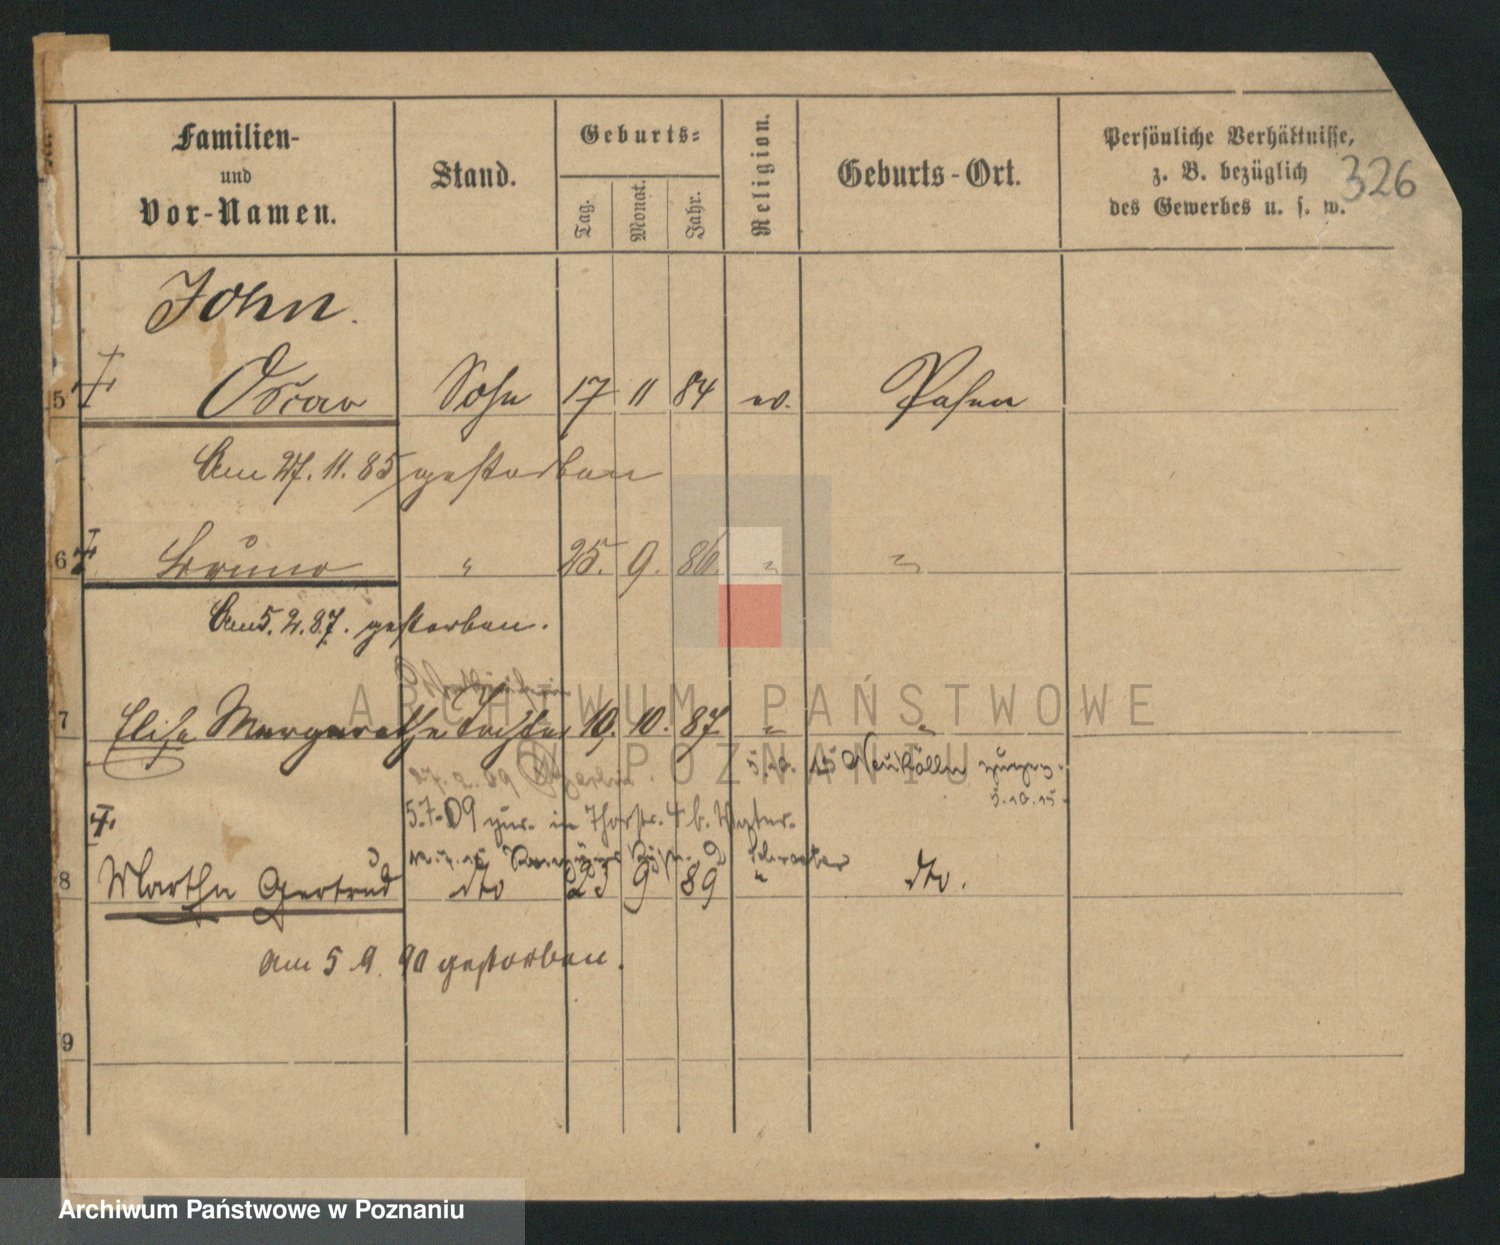 Familien-
und
Vor-Namen.
Stand.
Geburts-
Tag.
Monat.
Jahr.
Religion.
Geburts-Ort.
Persönliche Verhältnisse,
z. B. bezüglich
des Gewerbes u. s. w.
326
John.
5 Oscar Sohn 17 11 84 ev. Posen
Am 27. 11. 85 gestorben
6 Bruno " 25. 9. 86. " "
Am 5. 2. 87. gestorben.
7 Elise Margarethe Tochter 10. 10. 87 " "
27. 2. 09 Berlin
15 Neukölln
5.10.15.
5.7.09 zur. in Thorstr. 4 b. Vater.
8 Martha Gertrud dto 23 9 89 " dto.
am 5. 9. 90 gestorben.
9
ARCHIWUM PAŃSTWOWE
W POZNANIU
Archiwum Państwowe w Poznaniu